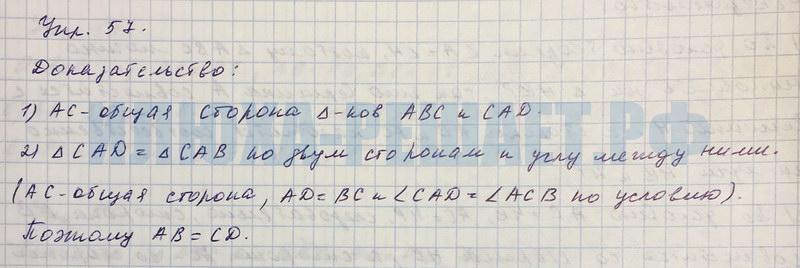 Упр. 57.
Доказательство:
1) AC - общая сторона Δ-ков ABC и CAD.
2) Δ CAD = Δ CAB по двум сторонам и углу между ними.
(AC - общая сторона, AD = BC и ∠CAD = ∠ACB по условию).
Поэтому AB = CD.